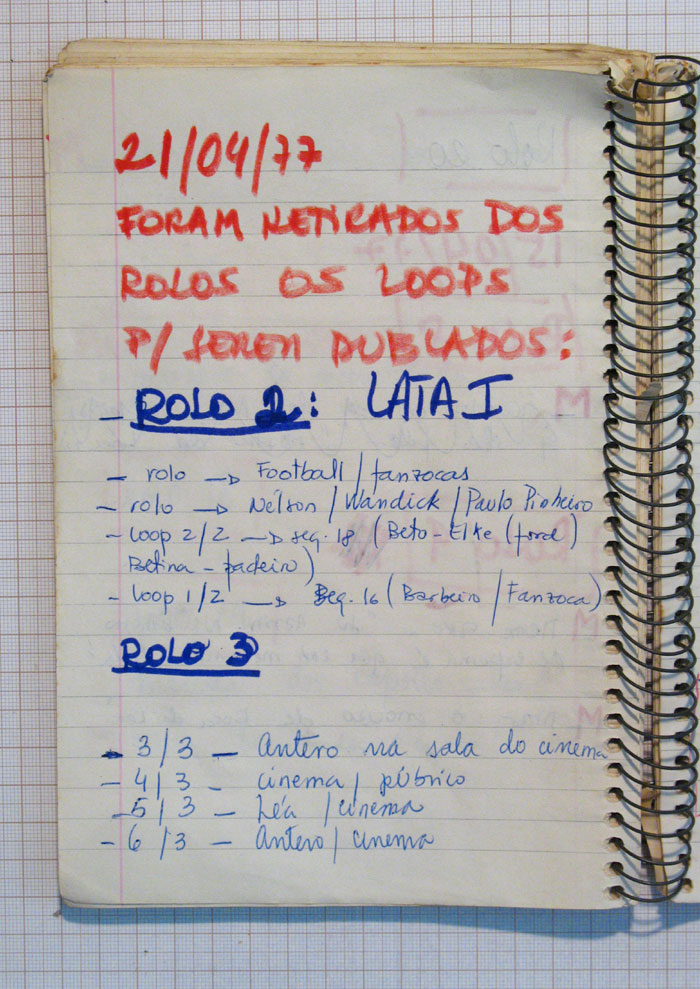 21/04/77
FORAM RETIRADOS DOS
ROLOS OS LOOPS
P/ SEREM DUBLADOS:
- ROLO 2: LATA I
- rolo → Football / fanzocas
- rolo → Nélson / Wandick / Paulo Pinheiro
- loop 2/2 → seq. 18 (Beto - Elke (ford)
Betina - padeiro)
- loop 1/2 → seq. 16 (Barbeiro / Fanzoca)
ROLO 3
- 3/3 - Antero na sala do cinema
- 4/3 - cinema / público
- 5/3 - Léa / cinema
- 6/3 - Antero / cinema